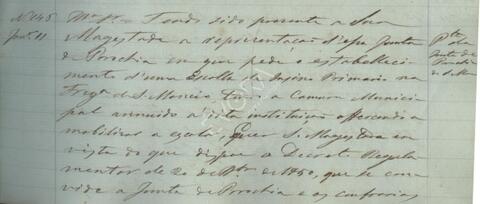 Nº 145
Jun. 11
Illmo. Sr. Tendo sido presente a Sua
Magestade a representação d'essa Junta
de Parochia em que pede o estabeleci
mento d'uma Escolla de Insino Primario na
Fregª de S. Mor tendo a Camara Munici
pal annuido a esta instituição offerecendo a
mobilizar a escola, Quer S. Magestade em
vista do que dispoe o Decreto Regula
mentar de 20 de de 1850, que se con
vide a Junta de Parochia e as confrarias
Pte
da
Junta de
Parochia
de S. M